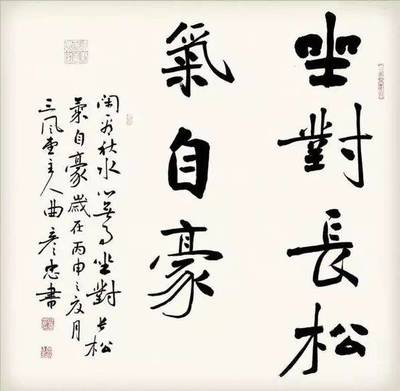 坐對長松
氣自豪
閒看秋水心無事坐對長松
氣自豪歲在丙申之夏月
三風堂主人曲彥忠書